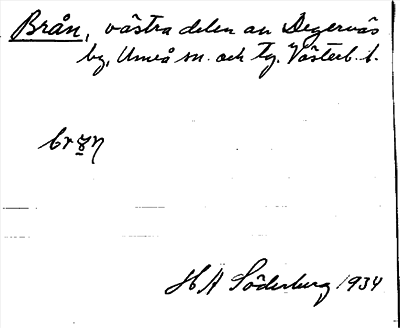 Brån, västra delen av Degernäs
by, Umeå sn. och tg. Västerb. l.
HA Söderberg 1934